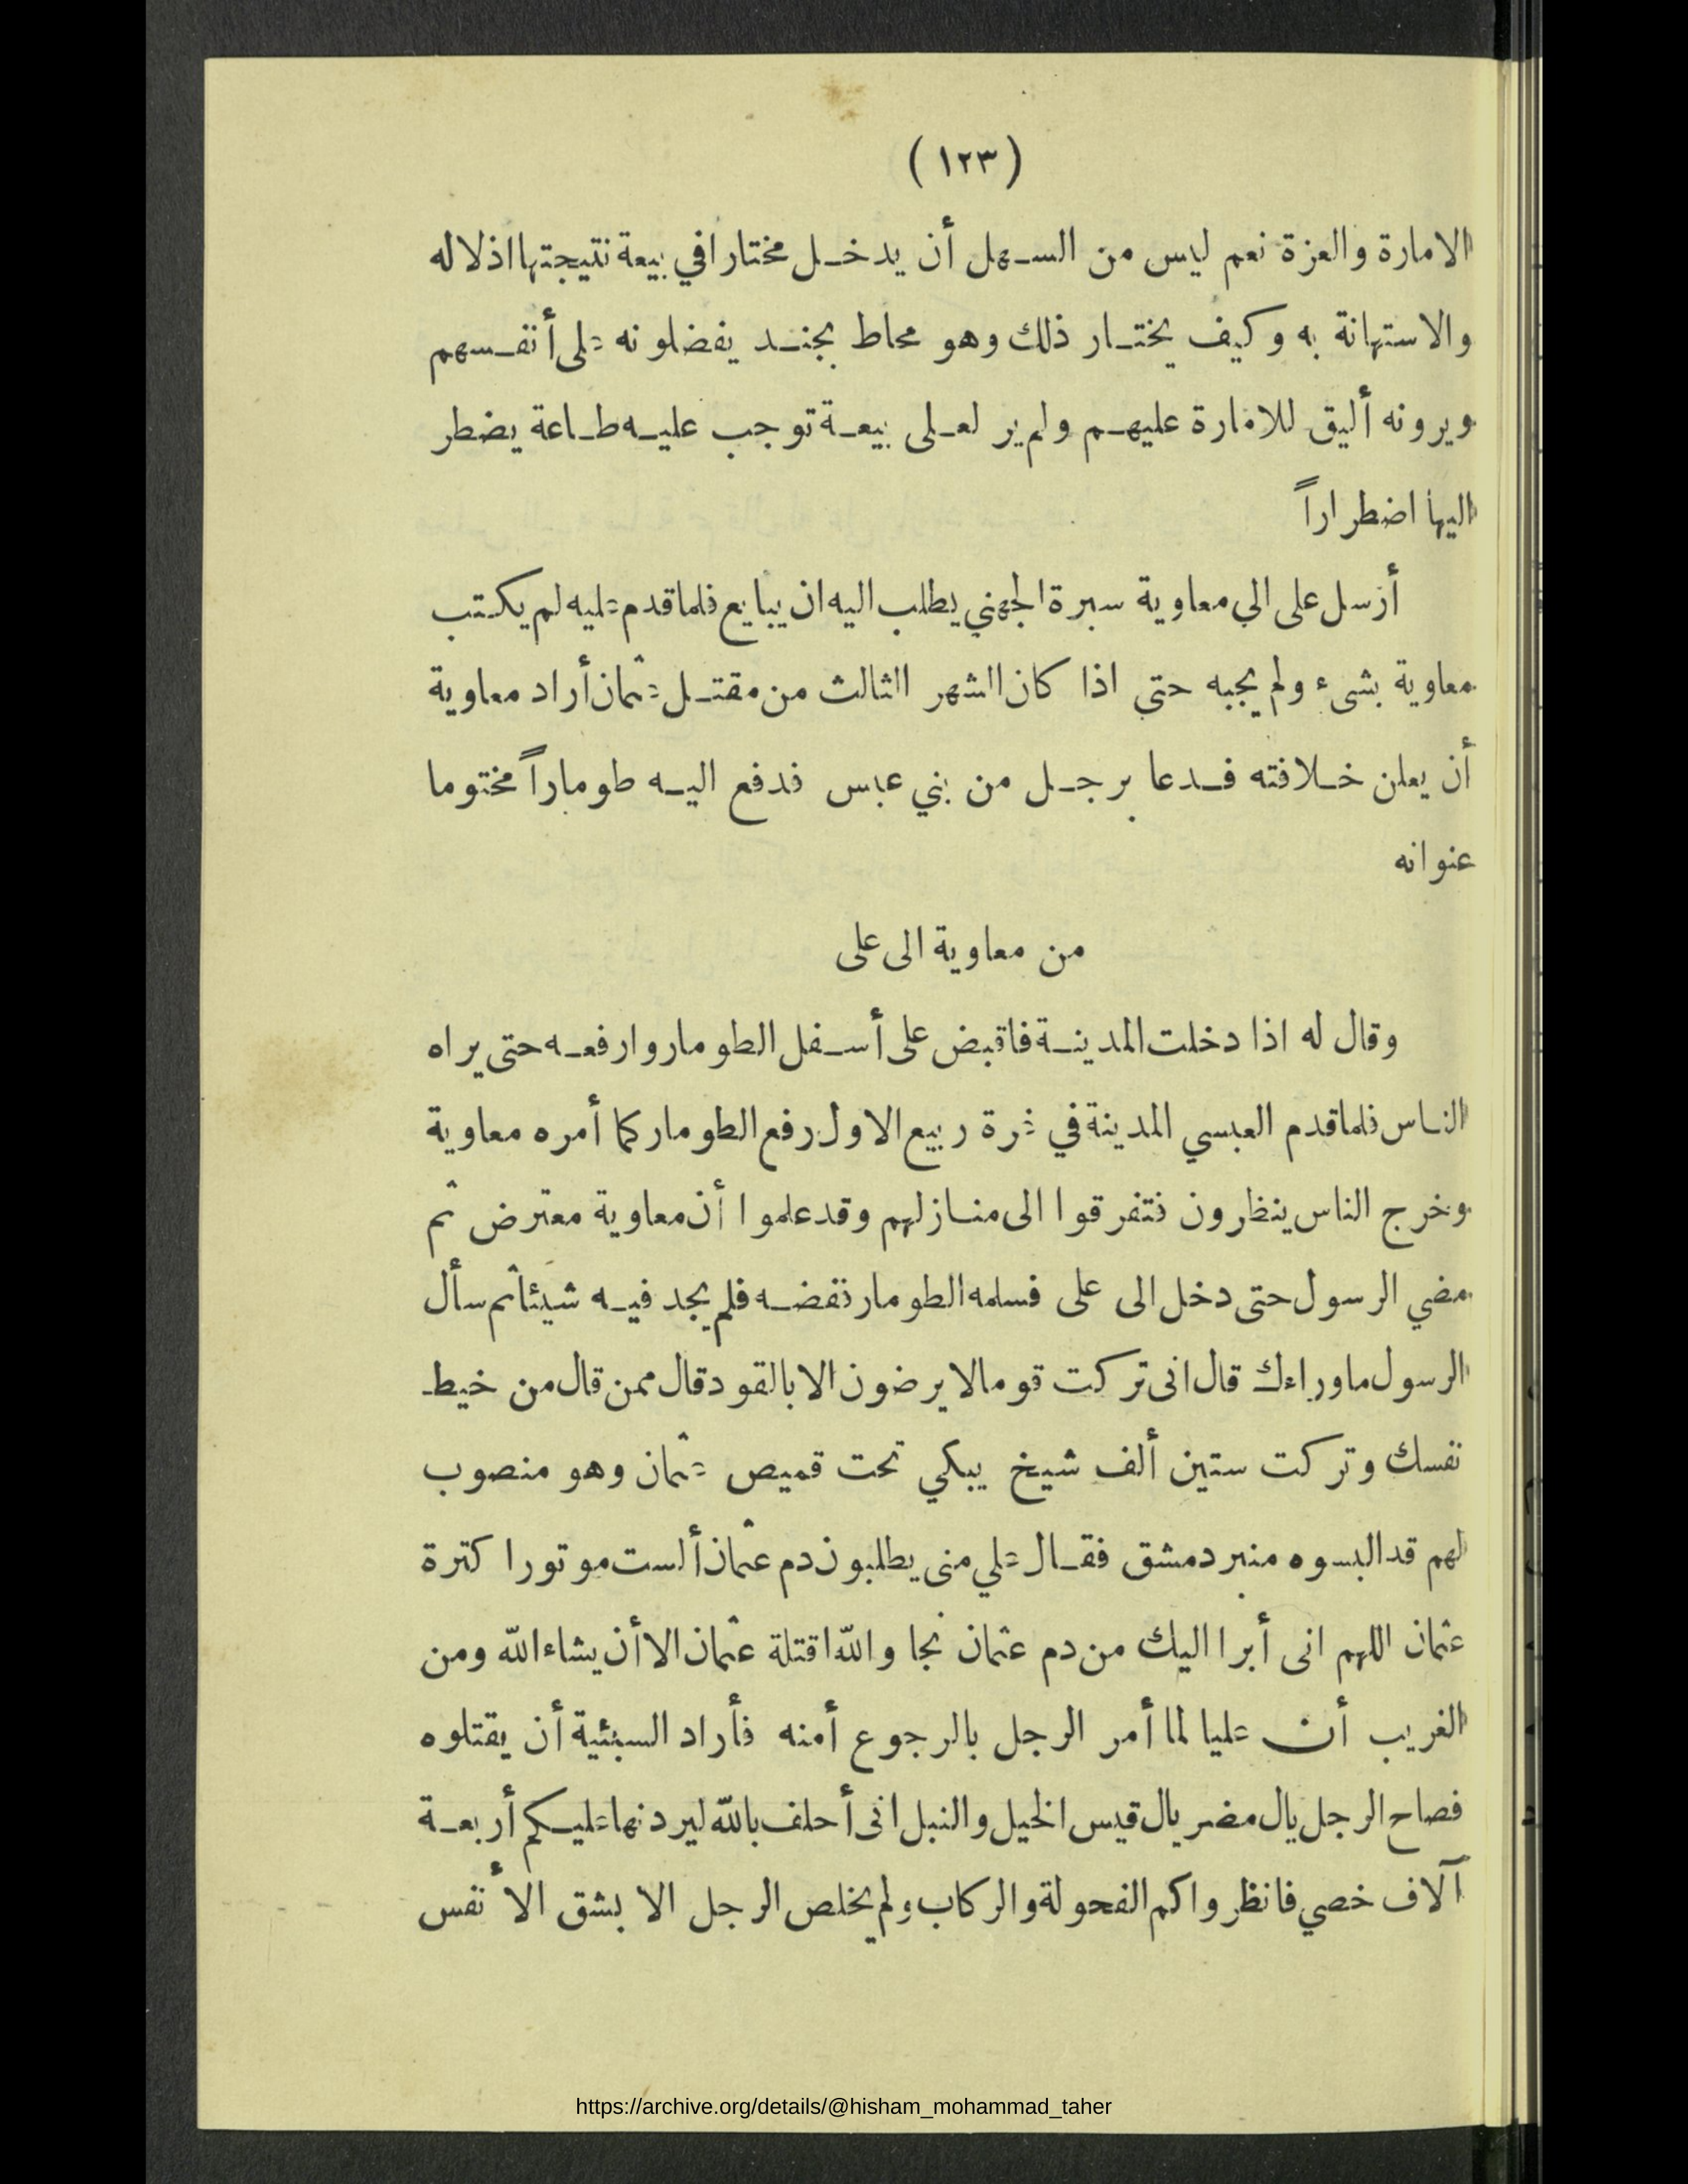 ( ١٢٣ )
الامارة والعزة نعم ليس من السهل أن يدخل مختارا في بيعة نتيجتها اذلاله
والاستهانة به وكيف يختار ذلك وهو محاط بجند يفضلونه على أنفسهم
ويرونه أليق للامارة عليهم ولم ير لعلى بيعة توجب عليه طاعة يضطر
اليها اضطراراً
أرسل على الى معاوية سبرة الجهني يطلب اليه ان يبايع فلما قدم عليه لم يكتب
معاوية بشىء ولم يجبه حتى اذا كان الشهر الثالث من مقتل عثمان أراد معاوية
أن يعلن خلافته فدعا برجل من بني عبس فدفع اليه طوماراً مختوما
عنوانه
من معاوية الى على
وقال له اذا دخلت المدينة فاقبض على أسفل الطومار وارفعه حتى يراه
الناس فلما قدم العبسي المدينة في غرة ربيع الاول رفع الطومار كما أمره معاوية
وخرج الناس ينظرون فتفرقوا الى منازلهم وقد علموا أن معاوية معترض ثم
مضي الرسول حتى دخل الى على فسلمه الطومار ففضه فلم يجد فيه شيئا ثم سأل
الرسول ما وراءك قال انى تركت قوما لا يرضون الا بالقود قال ممن قال من خيط
نفسك وتركت ستين ألف شيخ يبكي تحت قميص عثمان وهو منصوب
لهم قد البسوه منبر دمشق فقال علي منى يطلبون دم عثمان ألست موتورا كترة
عثمان اللهم انى أبرا اليك من دم عثمان نجا والله اقتلة عثمان الا أن يشاء الله ومن
الغريب أن عليا لما أمر الرجل بالرجوع أمنه فأراد السبئية أن يقتلوه
فصاح الرجل يال مضر يال قيس الخيل والنبل انى أحلف بالله ليردنها عليكم أربعة
آلاف خصي فانظروا كم الفحولة والركاب ولم يخلص الرجل الا بشق الأنفس
https://archive.org/details/@hisham_mohammad_taher